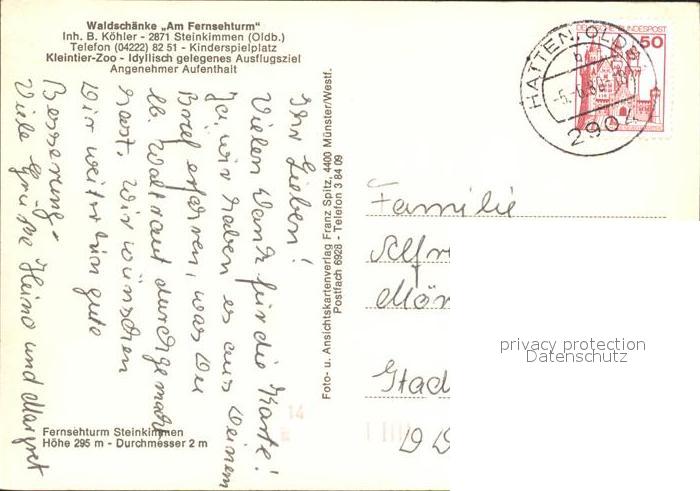 Waldschänke „Am Fernsehturm"
Inh. B. Köhler - 2871 Steinkimmen (Oldb.)
Telefon (04222) 82 51 - Kinderspielplatz
Kleintier-Zoo - Idyllisch gelegenes Ausflugsziel
Angenehmer Aufenthalt
Ihr Lieben!
Vielen Dank für die Karte!
Ja, wir haben es aus Deinem
Brief erfahren, was Du
lb. Waltraut durchgemacht
hast. Wir wünschen
Dir weiterhin gute
Besserung.
Viele Grüße Heino und Margret
Fernsehturm Steinkimmen
Höhe 295 m - Durchmesser 2 m
Foto- u. Ansichtskartenverlag Franz Spitz, 4400 Münster/Westf.
Postfach 6928 - Telefon 3 84 09
DEUTSCHE BUNDESPOST
50
HATTEN, OLDB
2904
Familie
Alfr
Mör
Stad
DD
privacy protection
Datenschutz